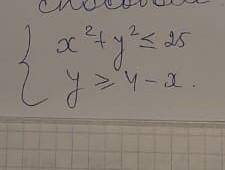 x² + y² ≤ 25
y ⩾ 4 - x.